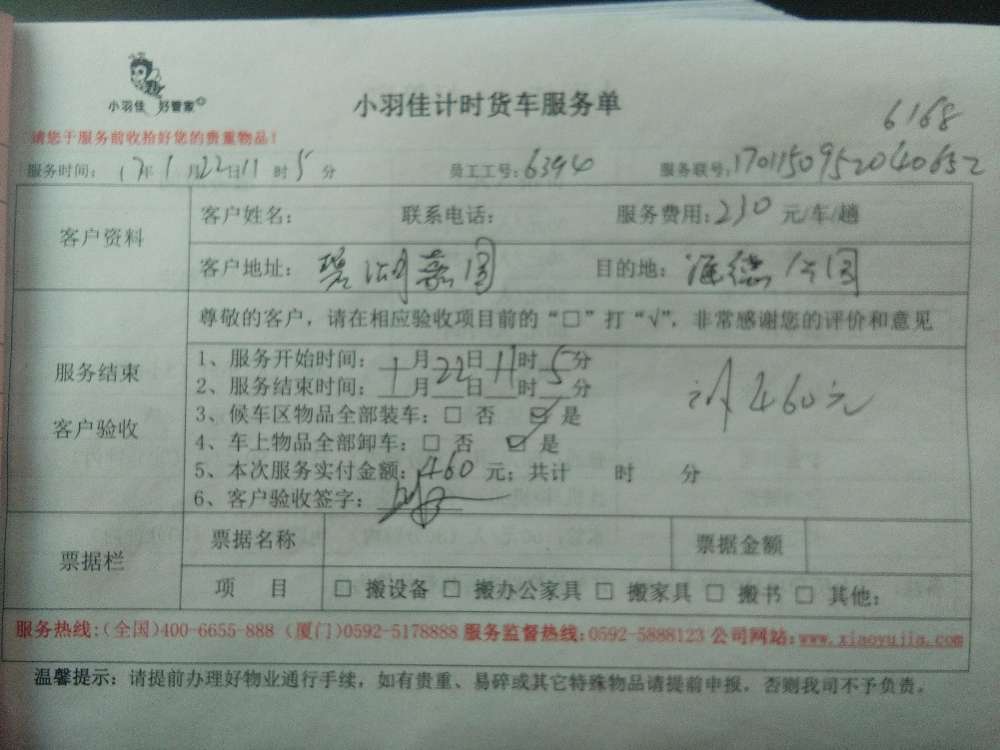 小羽佳 好管家
小羽佳计时货车服务单
6168
请您于服务前收拾好您的贵重物品！
服务时间： 17年 1月22日11时5分 员工工号：6394 服务联号：1701150952040652
客户资料
客户姓名： 联系电话： 服务费用：230元/车/趟
客户地址：碧湖嘉园 目的地：海德公园
服务结束
客户验收
尊敬的客户，请在相应验收项目前的“□”打“√”，非常感谢您的评价和意见
1、服务开始时间：1月22日11时5分
2、服务结束时间：1月 日 时 分
3、候车区物品全部装车：□ 否 ☑ 是
4、车上物品全部卸车：□ 否 ☑ 是
5、本次服务实付金额：460元；共计 时 分
6、客户验收签字：
计460元
票据栏
票据名称 票据金额
项 目 □ 搬设备 □ 搬办公家具 □ 搬家具 □ 搬书 □ 其他：
服务热线：（全国）400-6655-888（厦门）0592-5178888 服务监督热线：0592-5888123 公司网站：www.xiaoyujia.com
温馨提示：请提前办理好物业通行手续，如有贵重、易碎或其它特殊物品请提前申报，否则我司不予负责。